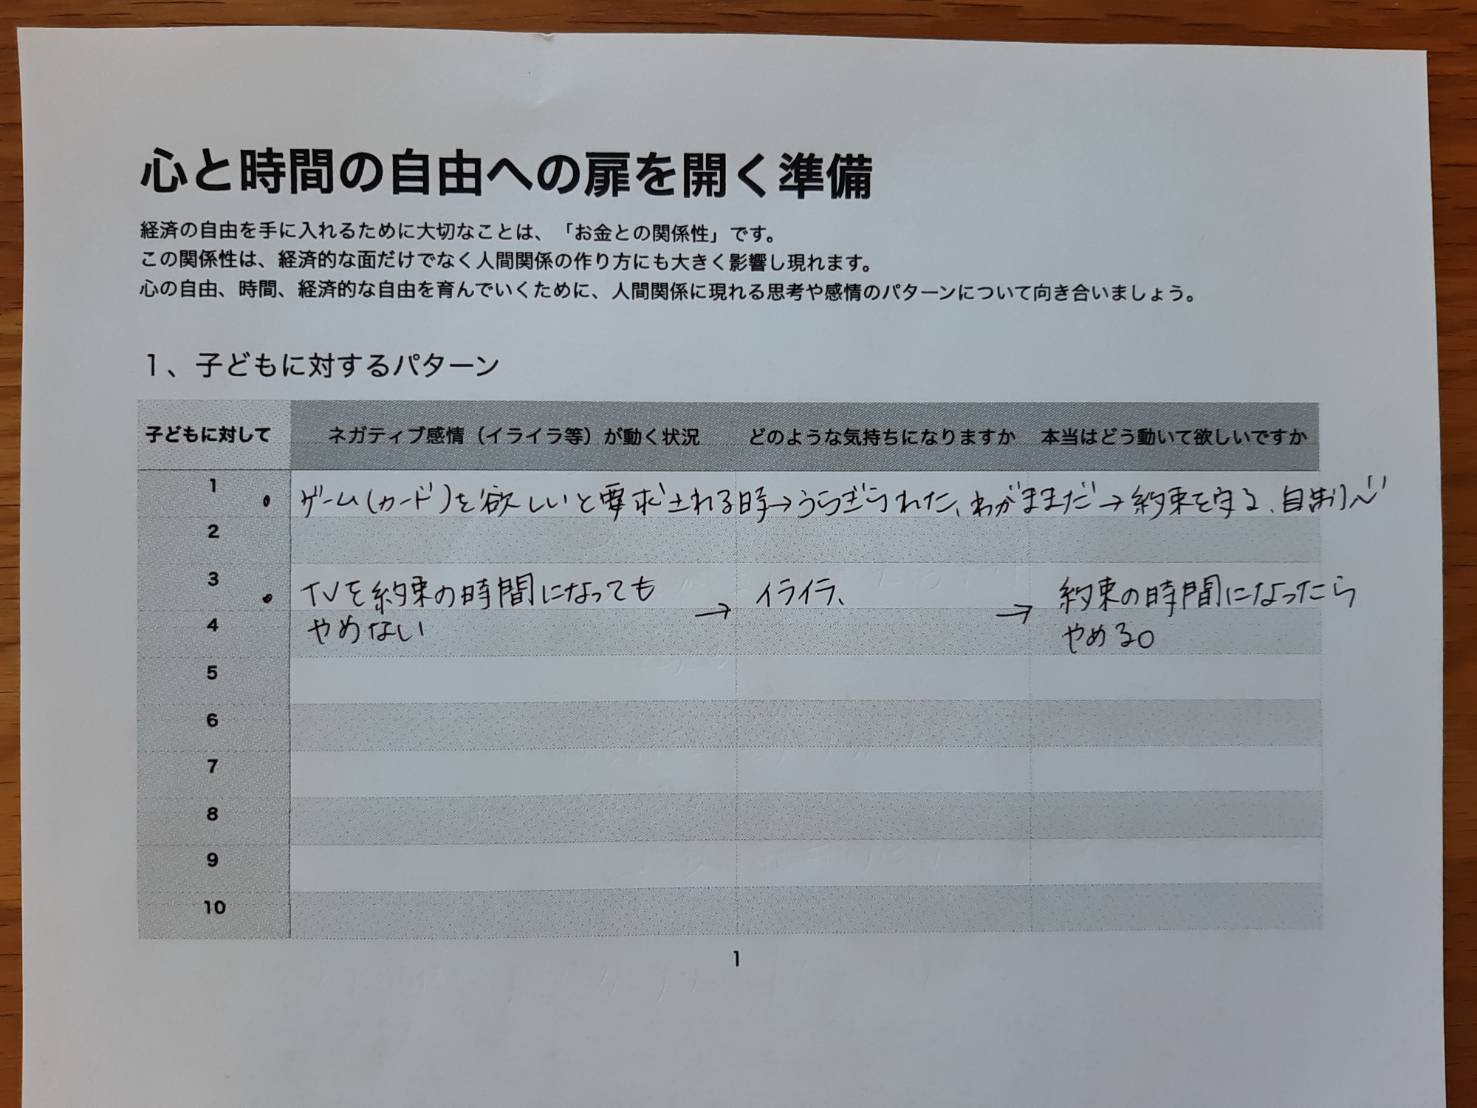 心と時間の自由への扉を開く準備
経済の自由を手に入れるために大切なことは、「お金との関係性」です。
この関係性は、経済的な面だけでなく人間関係の作り方にも大きく影響し現れます。
心の自由、時間、経済的な自由を育んでいくために、人間関係に現れる思考や感情のパターンについて向き合いましょう。
1、子どもに対するパターン
子どもに対して ネガティブ感情（イライラ等）が動く状況 どのような気持ちになりますか 本当はどう動いて欲しいですか
1 ・ ゲーム(カード)を欲しいと要求される時→うらぎられた、わがままだ→約束を守る、自制心
2
3 ・ TVを約束の時間になっても → イライラ、 → 約束の時間になったら
4 やめない やめる。
5
6
7
8
9
10
1